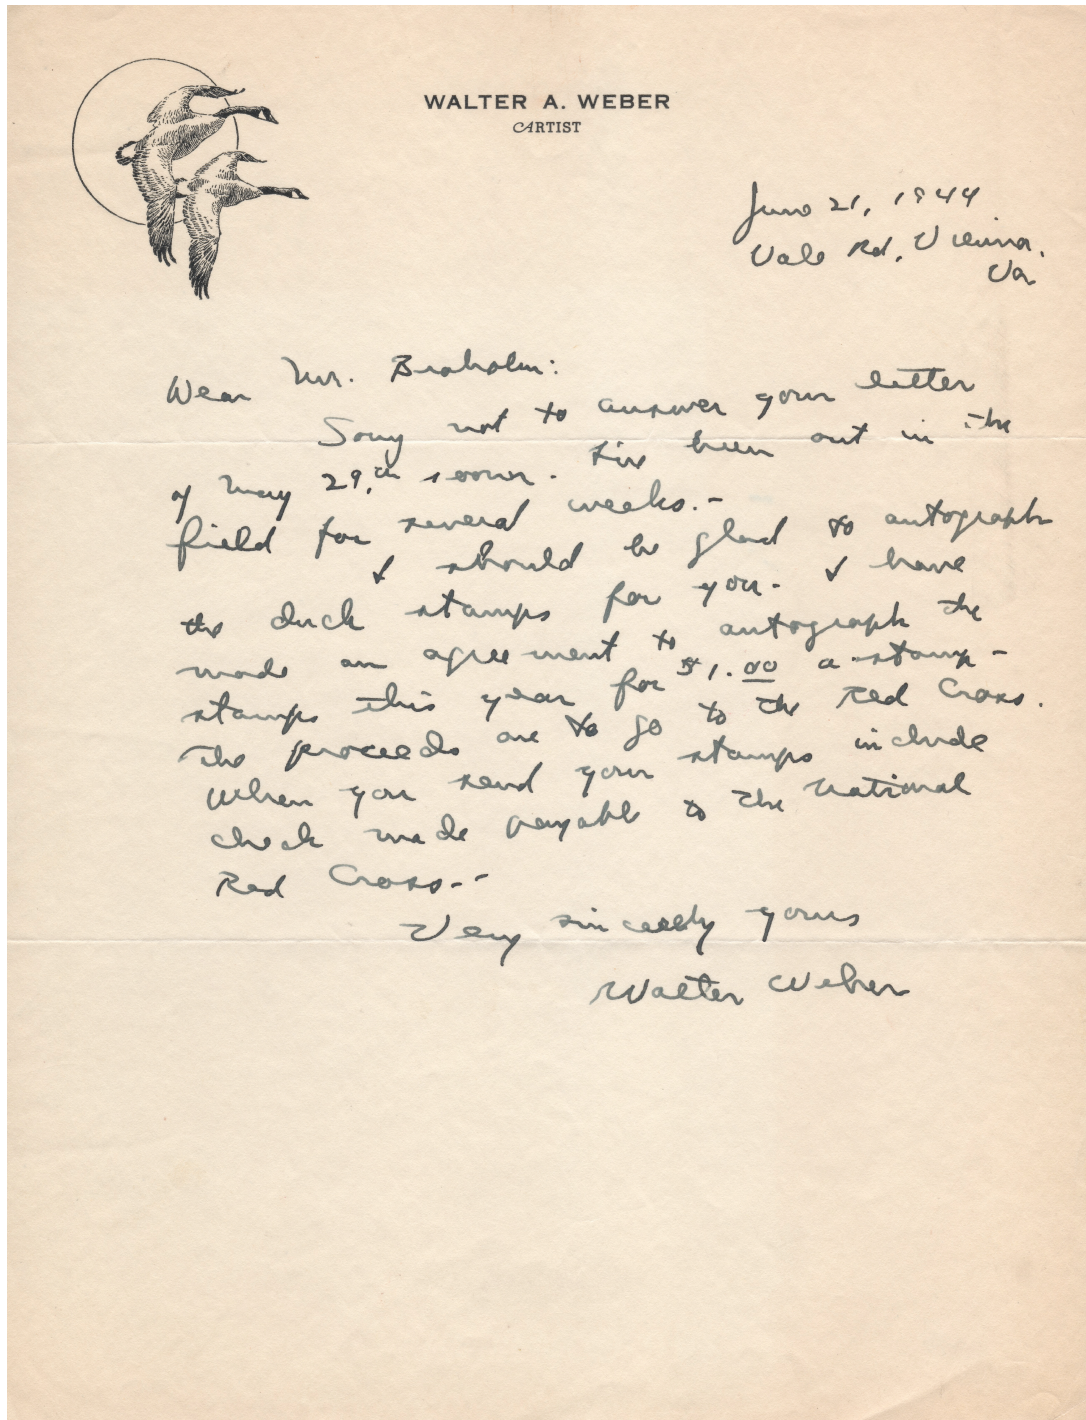 WALTER A. WEBER
ARTIST
June 21, 1944
Vale Rd, Vienna,
Va
Dear Mr.
Sorry not to answer your letter
of May 29,th sooner. I've been out in the
field for several weeks.-
I should be glad to autograph
the duck stamps for you. I have
made an agreement to autograph the
stamps this year for $1.00 a stamp -
The proceeds are to go to the Red Cross.
When you send your stamps include
check made payable to the National
Red Cross.--
Very sincerely yours
Walter Weber